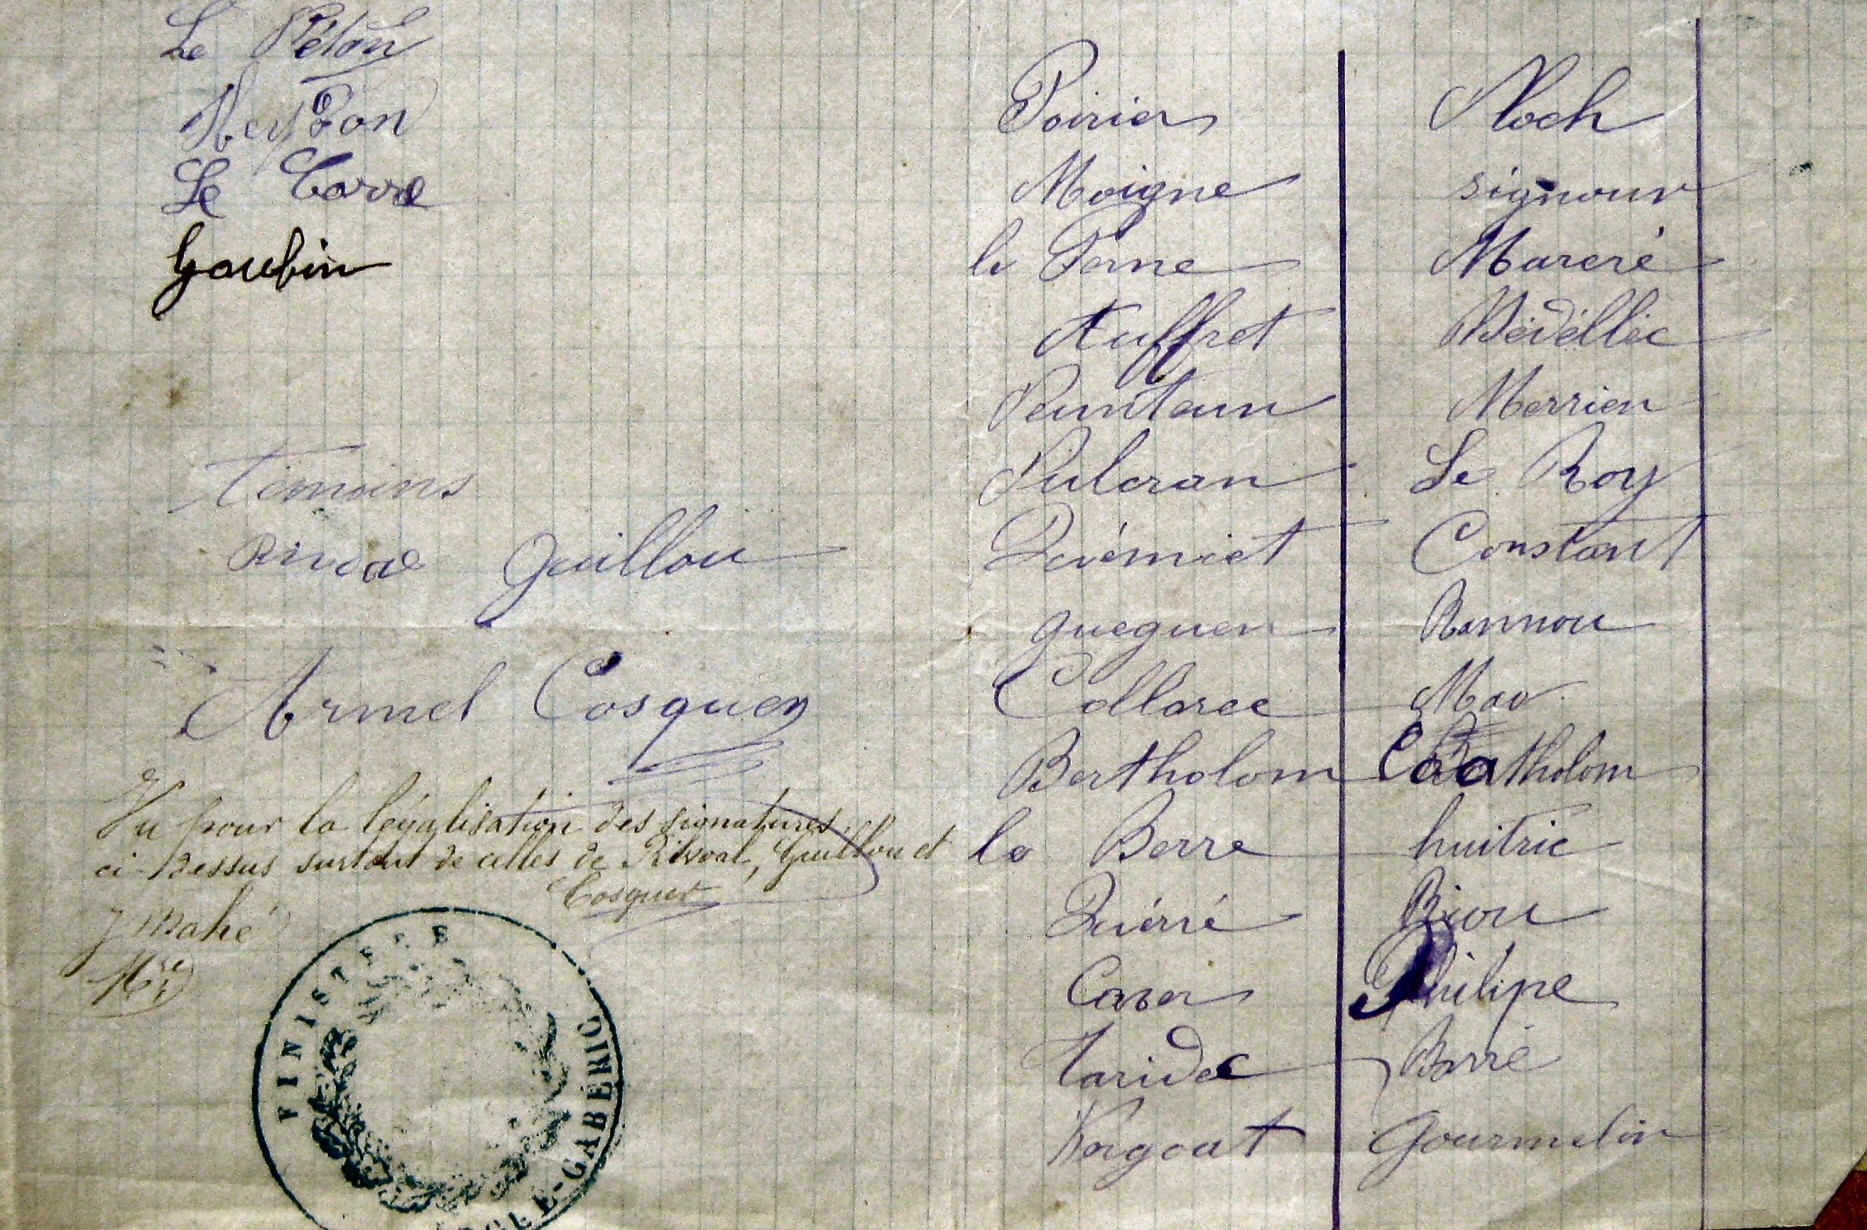 Le Pétou
Le Corre
Gaubin
Témoins
Rivoal Guillou
Armel Cosquer
Vu pour la légalisation des signatures
ci-dessus surtout de celles de Rivoal, Guillou et
Cosquer
J Mahé
Mre
FINISTERE
GABÉRIC
Poirier
Moigne
le Berre
Auffret
Feunteun
Pulcran
Quéméret
gueguen
Collorec
Bertholom
le Berre
Quérré
Caser
Taridec
Korgoat
Noch
signour
Mareré
Bédéllec
Merrien
Le Roy
Constant
Rannou
Mao
tholom
huitric
Bijou
Philipe
Barré
Gourmelin